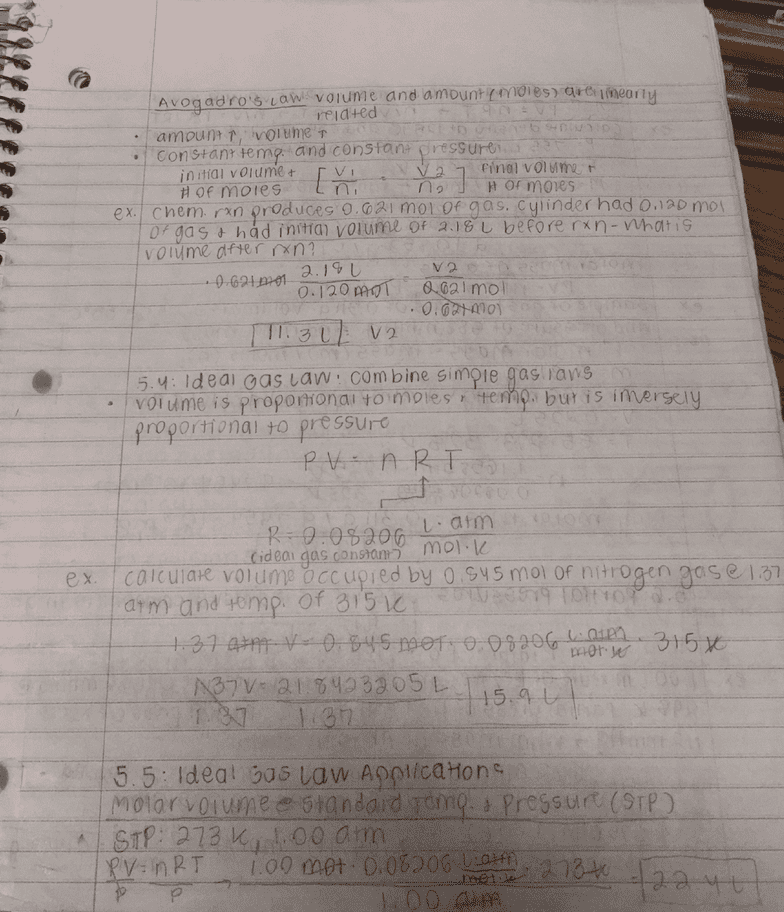 Avogadro's Law volume and amount (moles) are linearly
related
· amount ↑, volume ↑
· constant temp. and constant pressure
initial volume + # of moles [ V1/n1 = V2/n2 ] final volume + # of moles
ex. chem. rxn produces 0.621 mol of gas. cylinder had 0.120 mol
of gas + had initial volume of 2.18 L before rxn - what is
volume after rxn?
· 0.621 mol 2.18 L / 0.120 mol = V2 / 0.621 mol · 0.621 mol
11.3 L = V2
5.4: Ideal Gas Law: combine simple gas laws
· volume is proportional to moles + temp. but is inversely
proportional to pressure
PV = nRT
R = 0.08206 L·atm / mol·K
(ideal gas constant)
ex. calculate volume occupied by 0.845 mol of nitrogen gas @ 1.37
atm and temp. of 315 K
1.37 atm · V = 0.845 mol · 0.08206 L·atm / mol·K · 315 K
1.37V / 1.37 = 21.84233205 L / 1.37 = 15.9 L
5.5: Ideal Gas Law Applications
Molar volume @ Standard Temp. + Pressure (STP)
STP: 273 K, 1.00 atm
PV / P = nRT / P → 1.00 mol · 0.08206 L·atm / mol·K · 273 K / 1.00 atm = 22.4 L